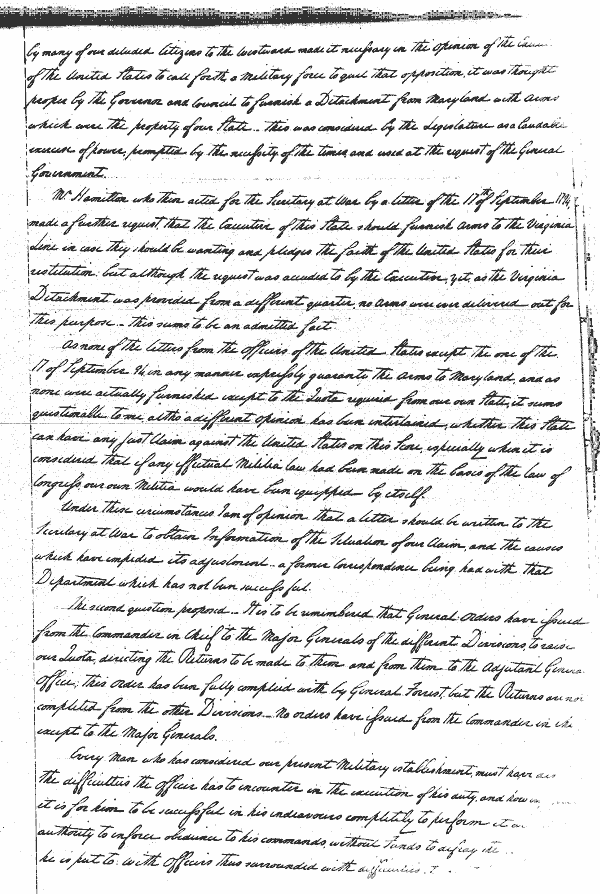 by many of our deluded Citizens to the Westward made it necessary in the opinion of the
of the United States to call forth a Military force to quel that opposition, it was thought
proper by the Governor and Council to furnish a Detachment from Maryland with Arms
which were the property of our State - this was considered by the Legislature as a laudable
exercise of power, prompted by the necessity of the times, and used at the request of the General
Government.
Mr Hamilton who then acted for the Secretary at War by a letter of the 17th of September 1794
made a further request that the Executive of this State should furnish Arms to the Virginia
Line in case they should be wanting and pledges the faith of the United States for their
restitution. but although the request was acceded to by the Executive, yet, as the Virginia
Detachment was provided from a different quarter, no Arms were ever delivered out for
this purpose - this seems to be an admitted fact.
As none of the letters from the officers of the United States except the one of the
17 of September 94 in any manner expressly guaranty the Arms to Maryland, and as
none were actually furnished except to the Quota required from our own State, it seems
questionable to me, altho a different opinion has been intertained, whether this State
can have any just Claim against the United States on this Score, especially when it is
considered that if any effectual Militia law had been made on the basis of the law of
Congress our own Militia would have been equipped by itself.
Under these circumstances I am of opinion that a letter should be written to the
Secretary at War to obtain Information of the Situation of our Claim, and the causes
which have impeded its adjustment - a former Correspondence being had with that
Department which has not been successful.
The second question proposed - It is to be remembered that General orders have issued
from the Commander in Chief to the Major Generals of the different Divisions to raise
our Quota, directing the Returns to be made to them and from them to the Adjutant General
Office; this order has been fully complied with by General Forrest but the Returns are not
completed from the other Divisions - No orders have issued from the Commander in
except to the Major Generals.
Every Man who has considered our present Military establishment, must have
the difficulties the officer has to encounter in the execution of his duty, and how
it is for him to be successful in his endeavours completely to perform it
authority to enforce obedience to his commands, without Funds to defray the
he is put to: with Officers thus surrounded with difficulties